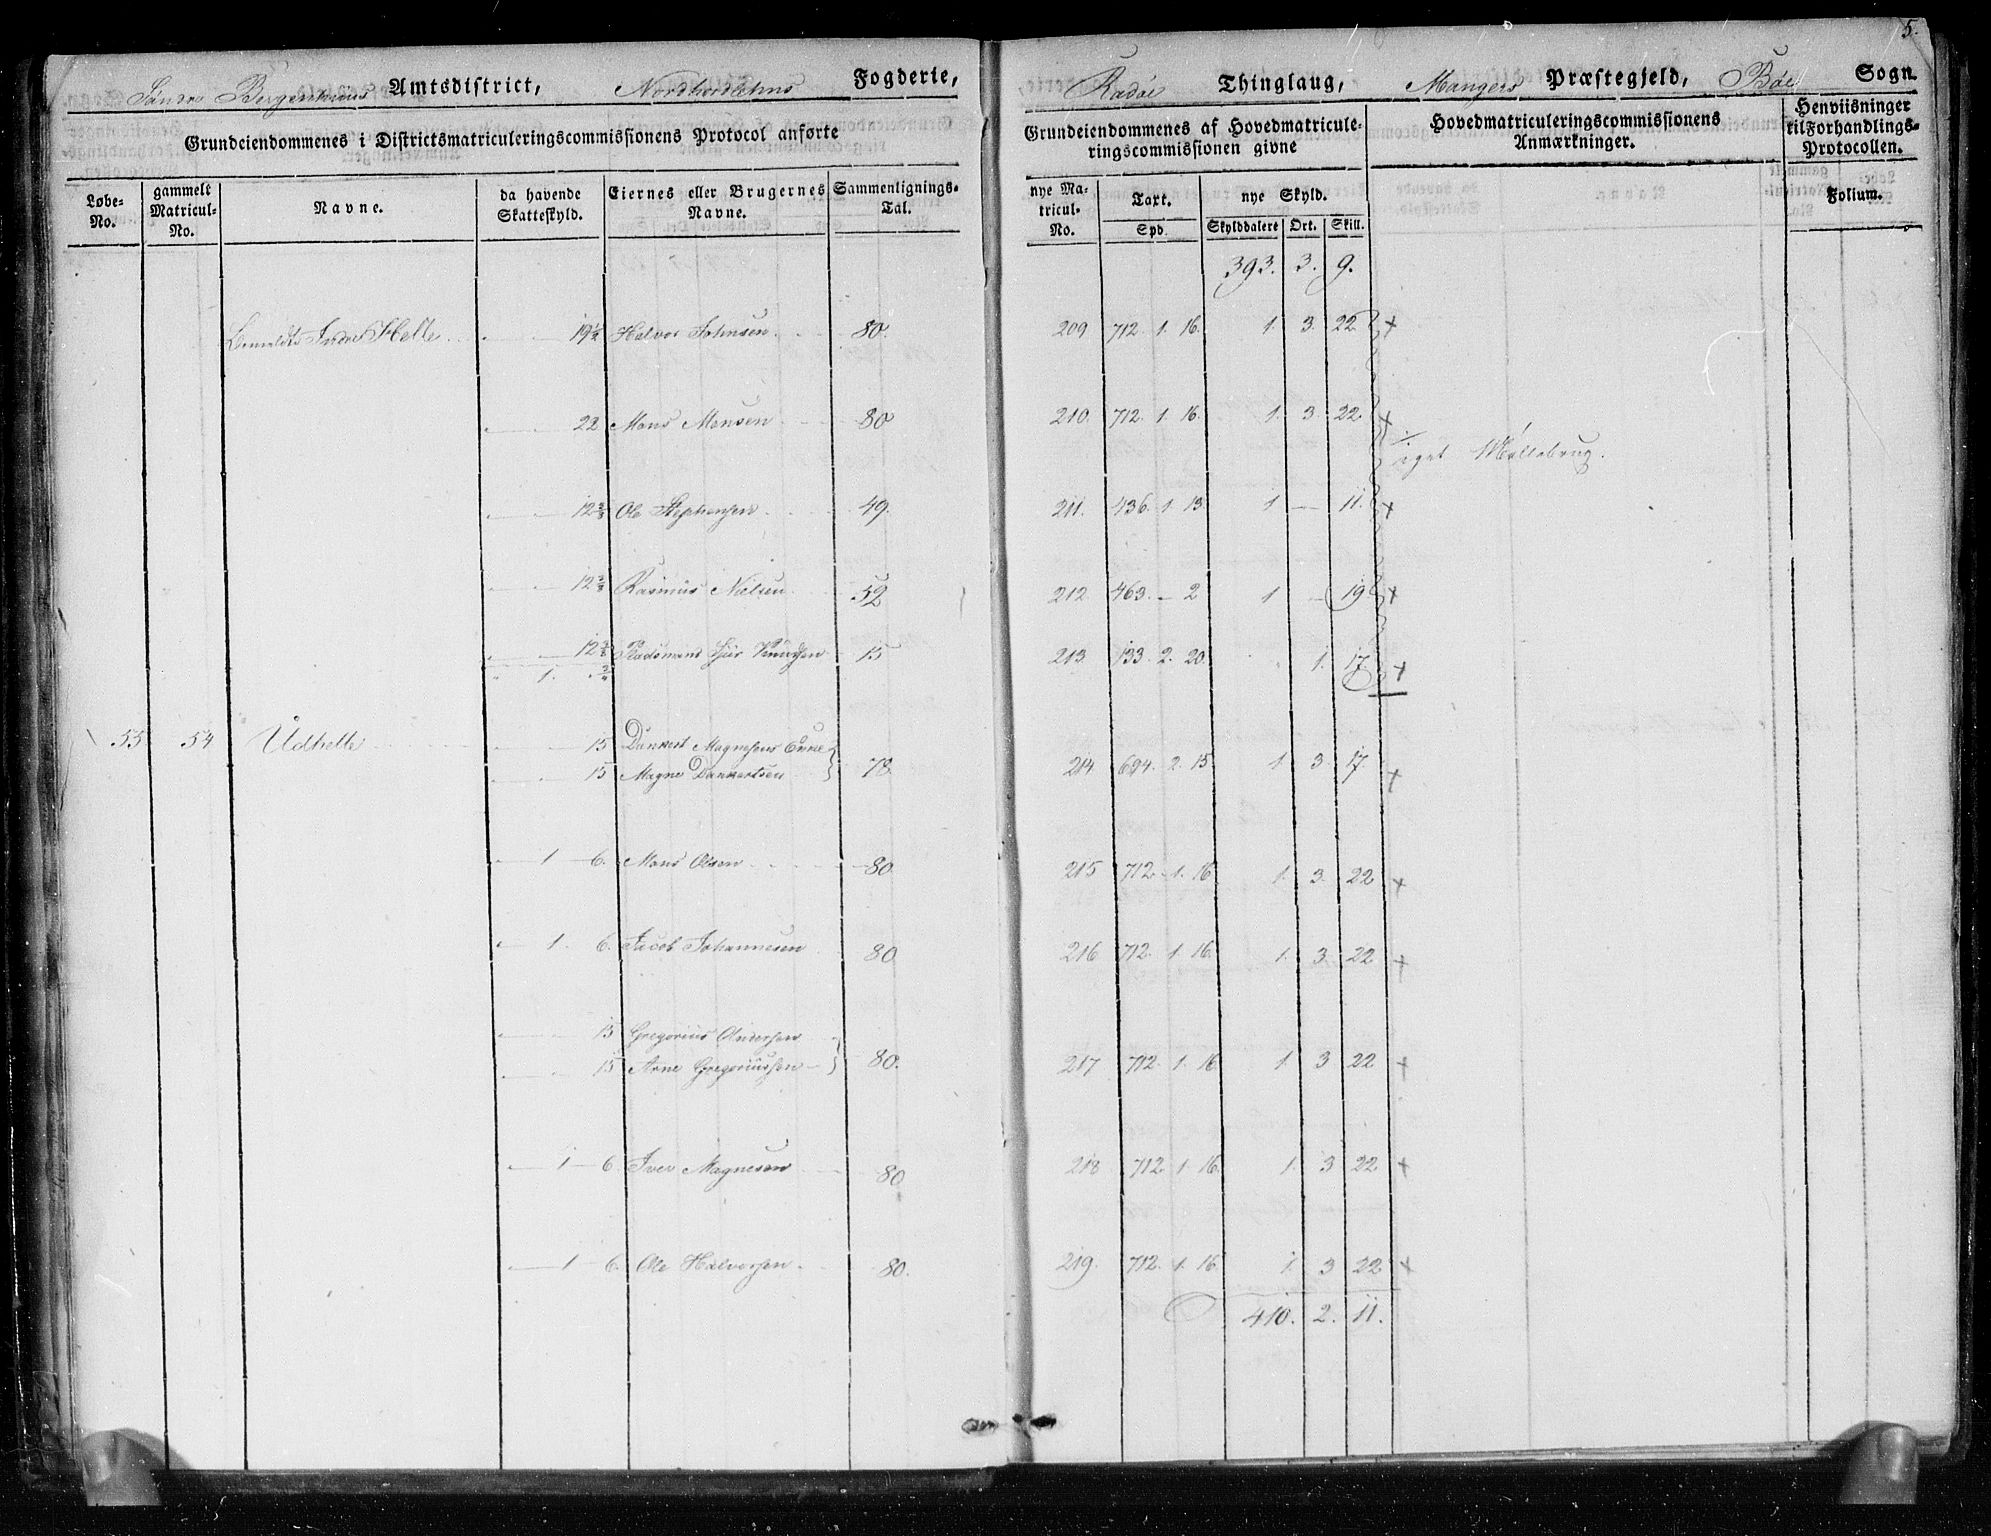 5.
Søndre Bergenhuus Amtsdistrict, Nordhordlehns Fogderie, Radøe Thinglaug, Mangers Præstegjeld, Bøe Sogn.
Grundeiendommenes i Districtsmatriculeringscommissionens Protocol anførte
Grundeiendommenes af Hovedmatricule-
ringscommissionen givne
Hovedmatriculeringscommissionens
Anmærkninger.
Henviisninger
til Forhandlings-
Protocollen.
Løbe-
No.
gammelt
Matricul-
No.
Navne.
da havende
Skatteskyld.
Eiernes eller Brugernes
Navne.
Sammenlignings-
Tal.
nye Ma-
tricul-
No.
Taxt.
Spd.
nye Skyld.
Skylddalere Ort. Skill.
Folium.
393. 3. 9.
Indre Helle 19½ Halvor Johnsen 80. 209 712. 1. 16. 1. 3. 22 +
22 Mons Monsen 80 210. 712. 1. 16. 1. 3. 22 +
eget Møllebrug.
12⅔ Ole Stephensen 49. 211. 436. 1. 13. 1 — 11. +
12⅔ Rasmus Nielsen 52 212. 463. — 2 1 — 19 +
12⅔ Knudsen 15 213. 133. 2. 20. 1. 17 +
1.
53 54 Udhelle 15 Dankert Magnesens Enke
15 Magne Dankertsen 78. 214 694. 2. 15 1 3. 17 +
1 6. Mons Olsen 80. 215 712. 1. 16 1. 3. 22 +
1. 6. Jacob Johannesen 80 216 712. 1. 16. 1. 3. 22 +
15 Gregorius Andersen
15 Arne Gregoriussen 80. 217 712. 1. 16. 1. 3 22 +
1 6 Iver Magnesen 80 218 712. 1. 16. 1. 3 22 +
1 6. Ole Halvorsen 80. 219. 712. 1. 16. 1. 3 22 +
410. 2. 11.